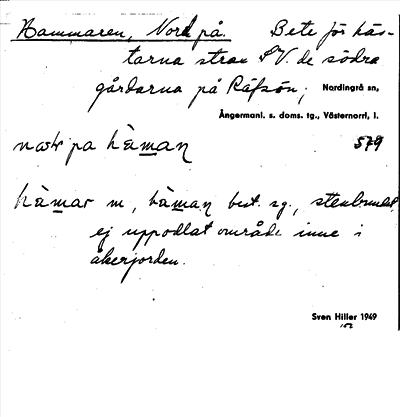 Hammaren, Nord på. Bete för häs-
tarna strax SV. de södra
gårdarna på Räfsön; Nordingrå sn,
Ångermanl. s. doms. tg., Västernorrl. l.
på hàman 579
hàmar m, hàman best. sg., stenbunden
ej uppodlat område inne i
åkerjorden.
Sven Hiller 1949